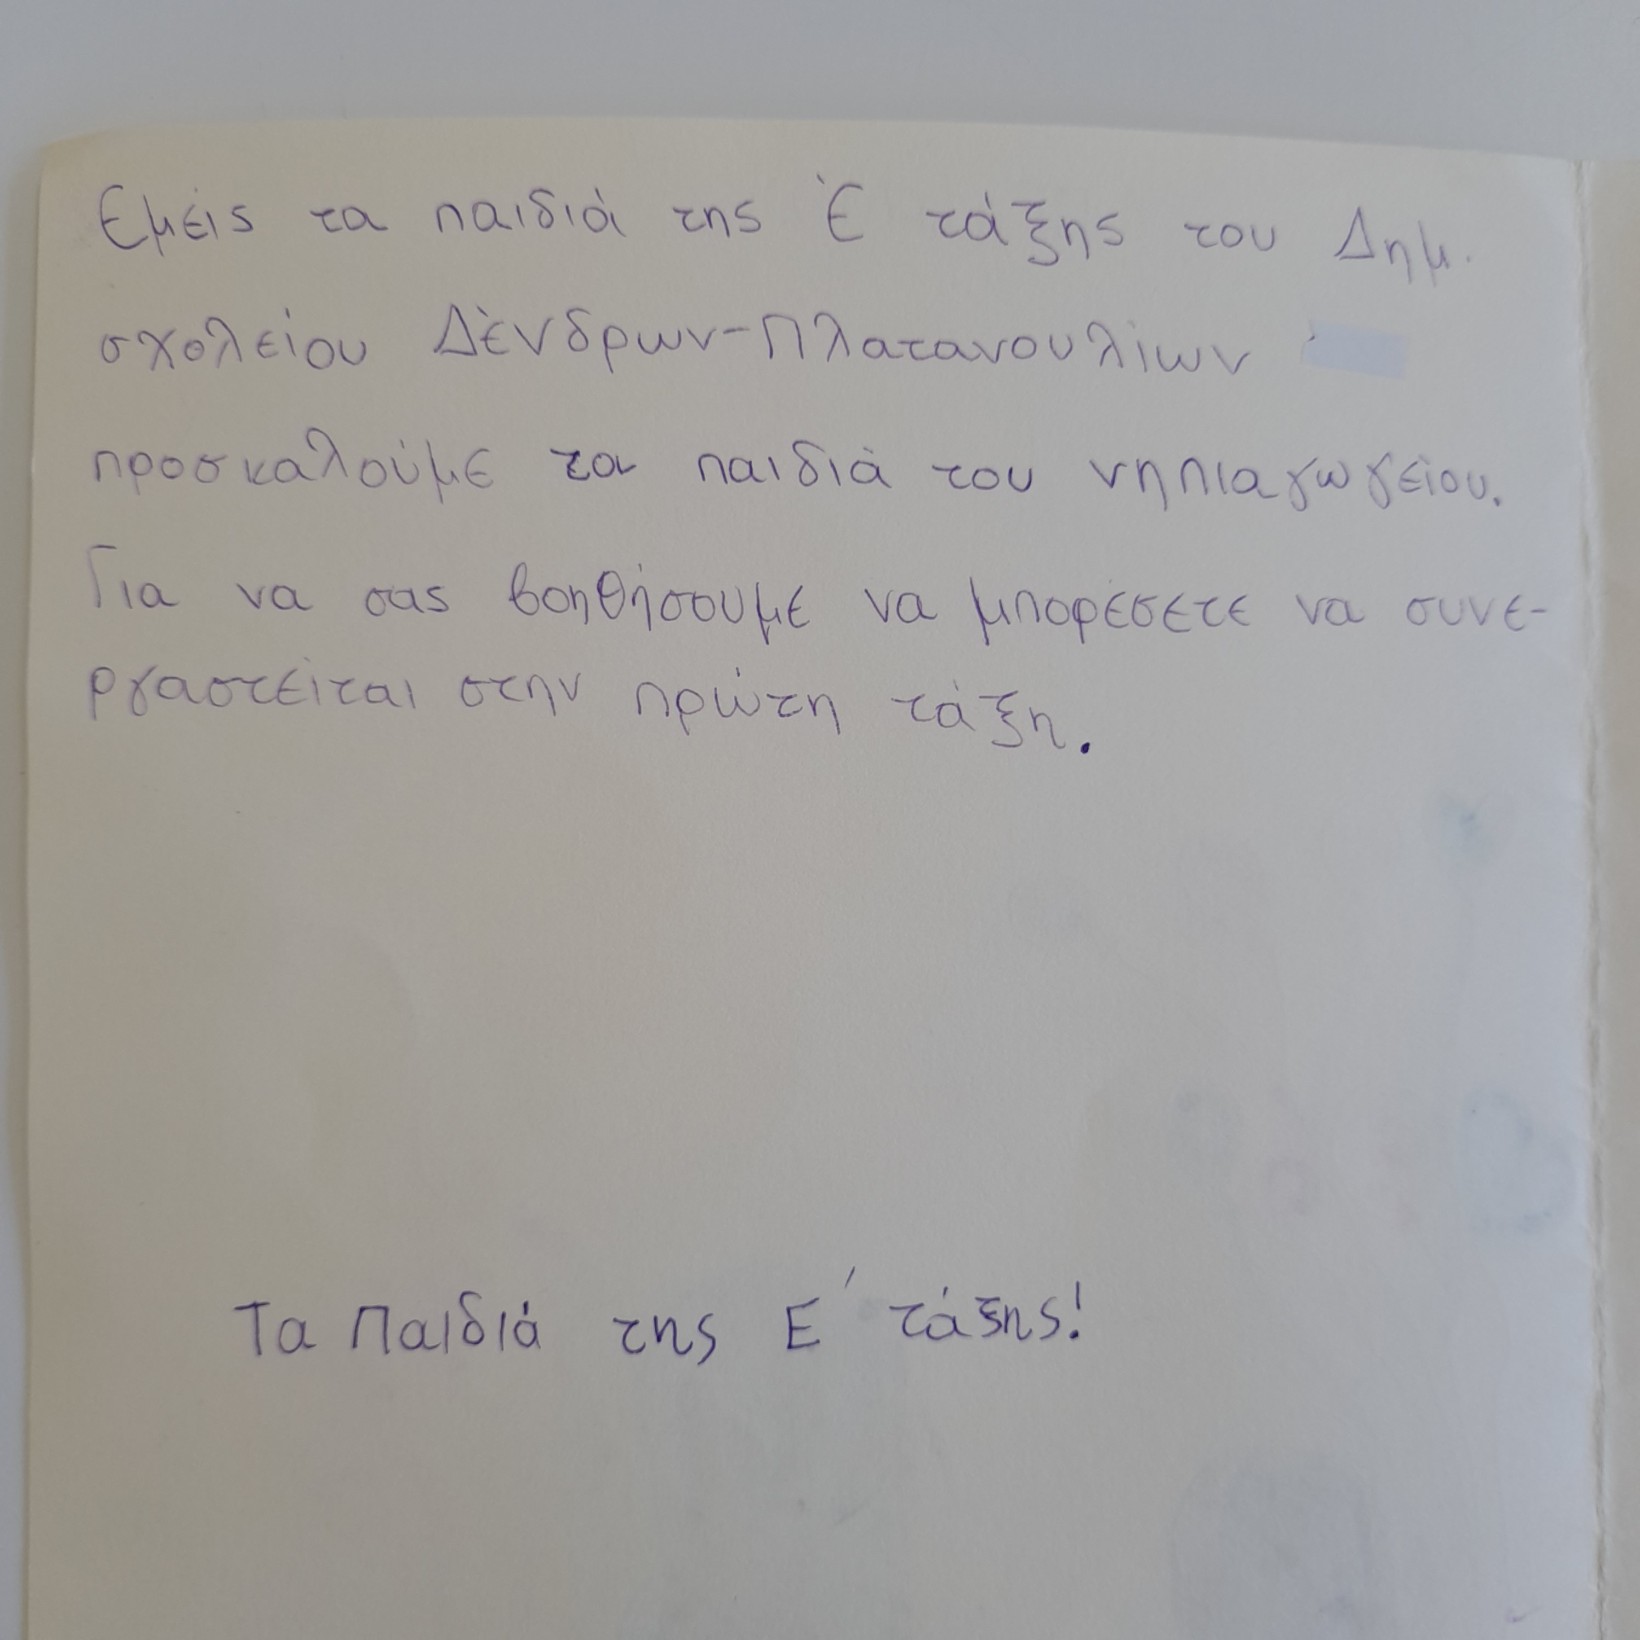 Εμείς τα παιδιά της Έ τάξης του Δημ.
σχολείου Δένδρων-Πλατανουλίων
προσκαλούμε τα παιδιά του νηπιαγωγείου.
Για να σας βοηθήσουμε να μπορέσετε να συνε-
ργαστείται στην πρώτη τάξη.
Τα Παιδιά της Ε΄ τάξης!